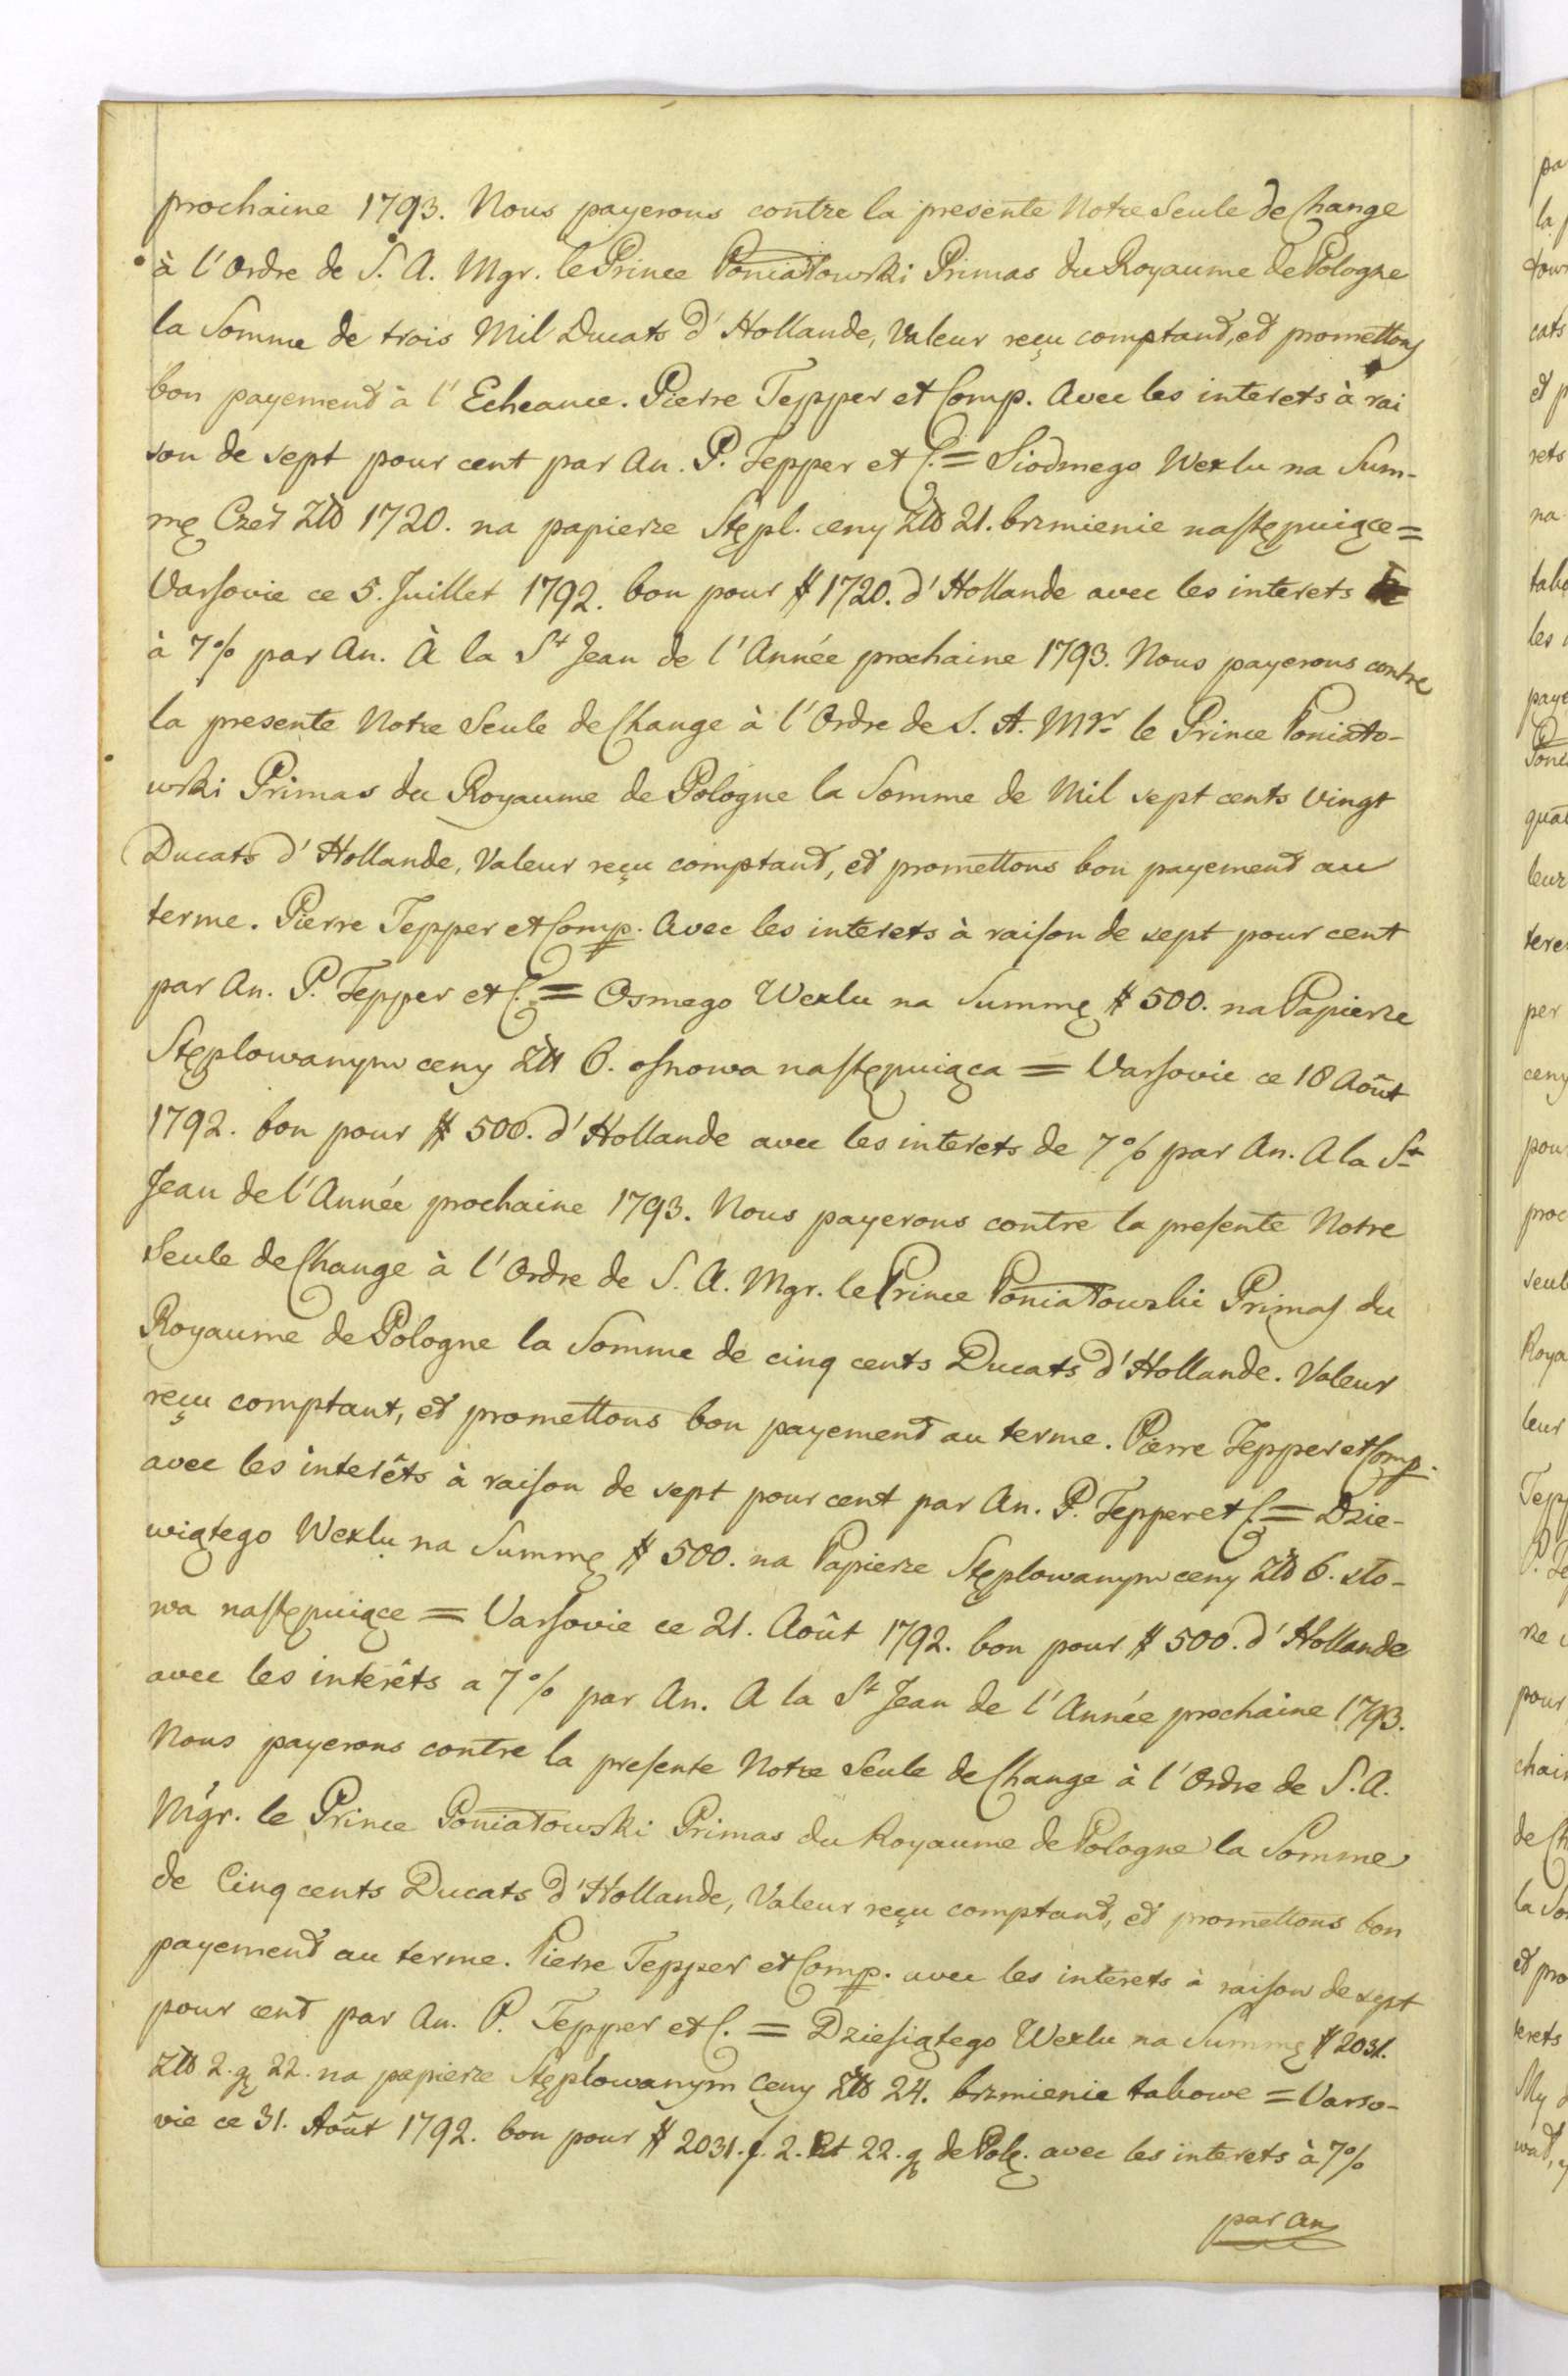 prochaine 1793. Nous payerons contre la presente Notre Seule de Change
à l'Ordre de S. A. Mgr. le Prince Poniatowski Primas du Royaume de Pologne
la Somme de trois Mil Ducats d'Hollande, Valeur reçu comptant, et promettons
bon payement à l'Echeance. Pierre Tepper et Comp. Avec les interets à rai
son de sept pour cent par An. P. Tepper et C. = Siodmego Wexlu na Sum-
mę Czer Złł 1720. na papierze Stępl. ceny Złł 21. brzmienie następuiące =
Varsovie ce 5. Juillet 1792. bon pour # 1720. d'Hollande avec les interets
à 7% par An. À la St Jean de l'Année prochaine 1793. Nous payerons contre
la presente Notre Seule de Change à l'Ordre de S. A. Mgr. le Prince Poniato-
wski Primas du Royaume de Pologne la Somme de Mil sept cents Vingt
Ducats d'Hollande, Valeur reçu comptant, et promettons bon payement au
terme. Pierre Tepper et Comp. Avec les interets à raison de sept pour cent
par An. P. Tepper et C. = Osmego Wexlu na Summę # 500. na Papierze
Stęplowanym ceny Złł 6. osnowa następuiąca = Varsovie ce 18 Août
1792. bon pour # 500. d'Hollande avec les interets de 7% par An. A la St
Jean de l'Année prochaine 1793. Nous payerons contre la presente Notre
Seule de Change à l'Ordre de S. A. Mgr. le Prince Poniatowski Primas du
Royaume de Pologne la Somme de cinq cents Ducats d'Hollande. Valeur
reçu comptant, et promettons bon payement au terme. Pierre Tepper et Comp.
avec les interêts à raison de sept pour cent par An. P. Tepper et C. = Dzie-
wiątego Wexlu na Summę # 500. na Papierze Stęplowanym ceny Złł 6. sło-
wa następuiące = Varsovie ce 21. Août 1792. bon pour # 500. d'Hollande
avec les interêts a 7% par An. A la St Jean de l'Année prochaine 1793.
Nous payerons contre la presente Notre Seule de Change à l'Ordre de S. A.
Mgr. le Prince Poniatowski Primas du Royaume de Pologne la Somme
de Cinq cents Ducats d'Hollande, Valeur reçu comptant, et promettons bon
payement au terme. Pierre Tepper et Comp. avec les interets à raison de sept
pour cent par An. P. Tepper et C. = Dziesiątego Wexlu na Summę # 2031.
Złł 2. g 22. na papierze Stęplowanym Ceny Złł 24. brzmienie takowe = Varso-
vie ce 31. Août 1792. bon pour # 2031. f. 2. Et 22. g de Pol. avec les interets à 7%
par An